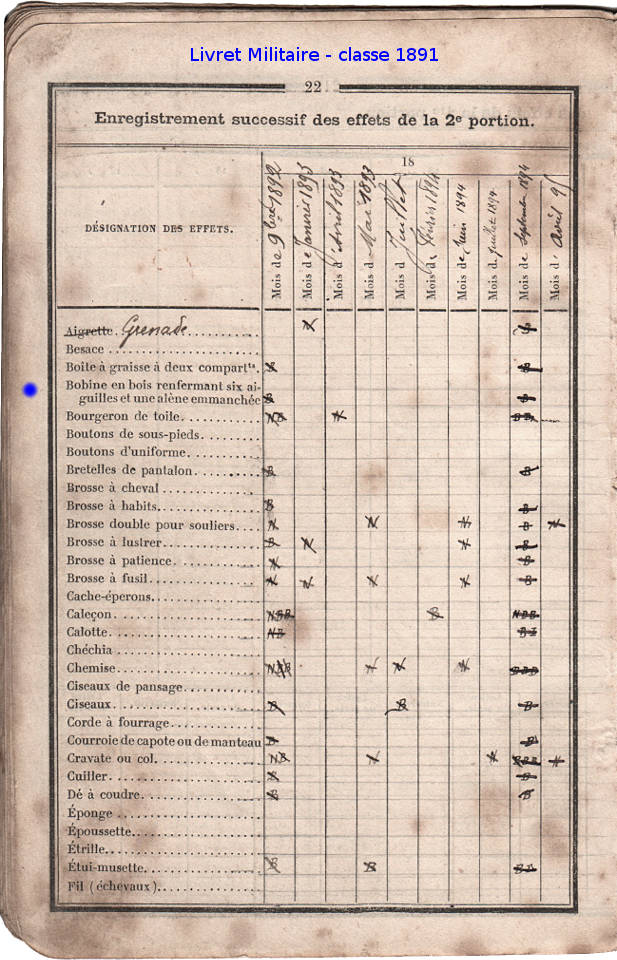 Livret Militaire - classe 1891
22
Enregistrement successif des effets de la 2e portion.
18
DÉSIGNATION DES EFFETS.
Mois de 9bre 1892
Mois de Janvier 1893
Mois d Avril 1893
Mois d Mai 1893
Mois d Juillet
Mois de Février 1894
Mois de Juin 1894
Mois d Juillet 1894
Mois de Septembre 1894
Mois d' Avril 95
Aigrette. Grenade
Besace
Boîte à graisse à deux compartts.
Bobine en bois renfermant six ai-
guilles et une alène emmanchée
Bourgeron de toile
Boutons de sous-pieds
Boutons d'uniforme
Bretelles de pantalon
Brosse à cheval
Brosse à habits
Brosse double pour souliers
Brosse à lustrer
Brosse à patience
Brosse à fusil
Cache-éperons
Caleçon
Calotte
Chéchia
Chemise
Ciseaux de pansage
Ciseaux
Corde à fourrage
Courroie de capote ou de manteau
Cravate ou col
Cuiller
Dé à coudre
Éponge
Époussette
Étrille
Étui-musette
Fil (échevaux)